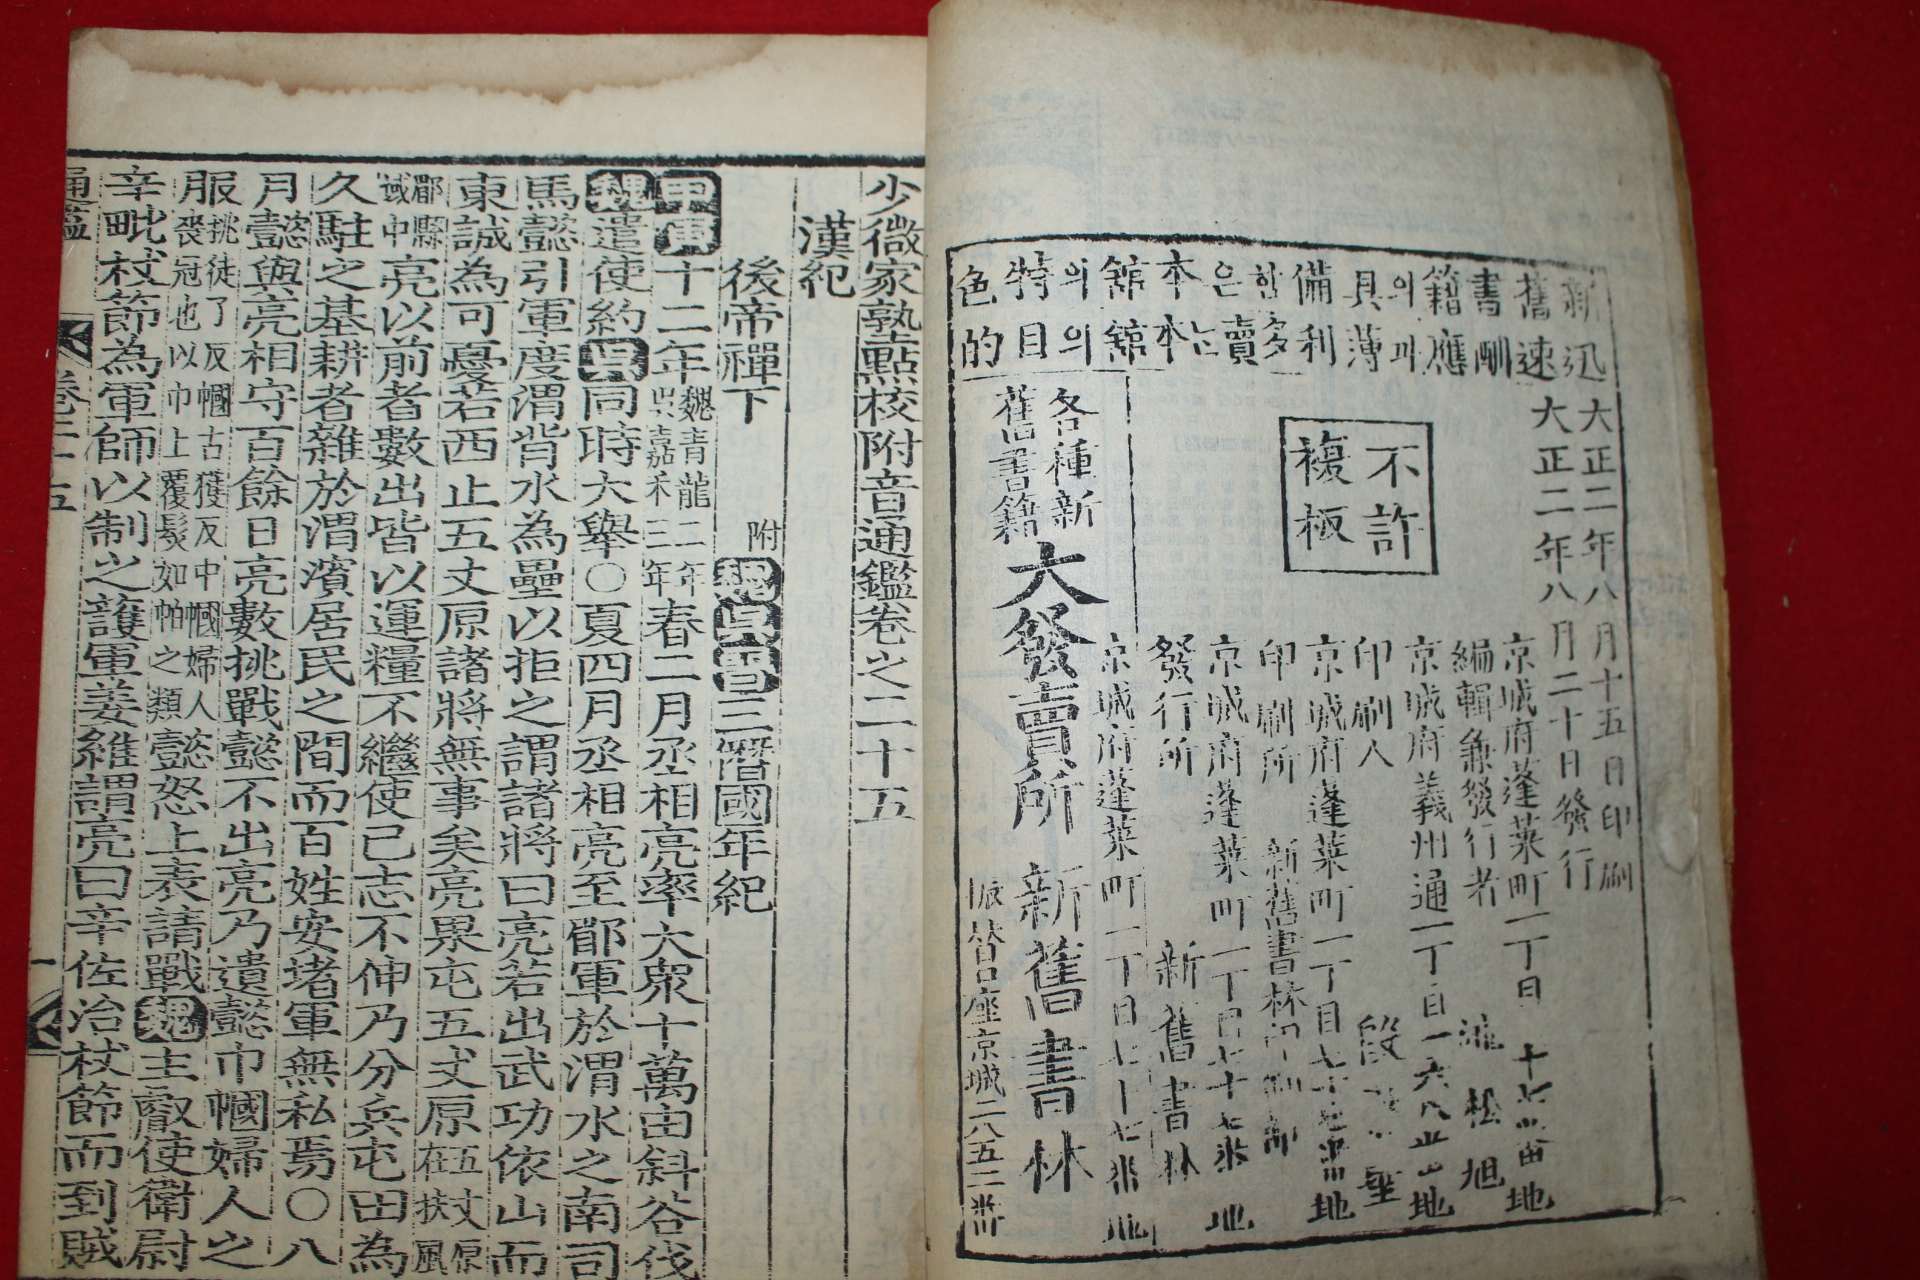 新舊書籍의具備할은本舘의特色
迅速酬應의薄利多賣는本舘의目的
大正二年八月十五日印刷
大正二年八月二十日發行
不許
複板
京城府蓬萊町一丁目七十七番地
編輯兼發行者 池松旭
京城府義州通一丁目
印刷人
京城府蓬萊町一丁目七十七番地
印刷所 新舊書林印刷部
京城府蓬萊町一丁目七十七番地
發行所 新舊書林
京城府蓬萊町一丁目七十七番地
各種新
舊書籍
大發賣所 新舊書林
振替口座京城二八五二番
少微家塾點校附音通鑑卷之二十五
漢紀
後帝禪下 附魏吳晉三僭國年紀
甲寅十二年魏青龍二年吳嘉禾三年春二月丞相亮率大衆十萬由斜谷伐
魏遣使約吳同時大舉○夏四月丞相亮至郿軍於渭水之南司
馬懿引軍度渭背水為壘以拒之謂諸將曰亮若出武功依山而
東誠為可憂若西止五丈原諸將無事矣亮果屯五丈原在扶風五丈原
郿縣域中亮以前者數出皆以運糧不繼使己志不伸乃分兵屯田為
久駐之基耕者雜於渭濱居民之間而百姓安堵軍無私焉○八
月懿與亮相守百餘日亮數挑戰懿不出亮乃遺懿巾幗婦人之
服挑徒了反幗古獲反中幗婦人喪冠也以巾上覆髮如帕之類懿怒上表請戰魏主叡使衛尉
辛毗杖節為軍師以制之護軍姜維謂亮曰辛佐治杖節而到賊
通鑑 卷二十五 一